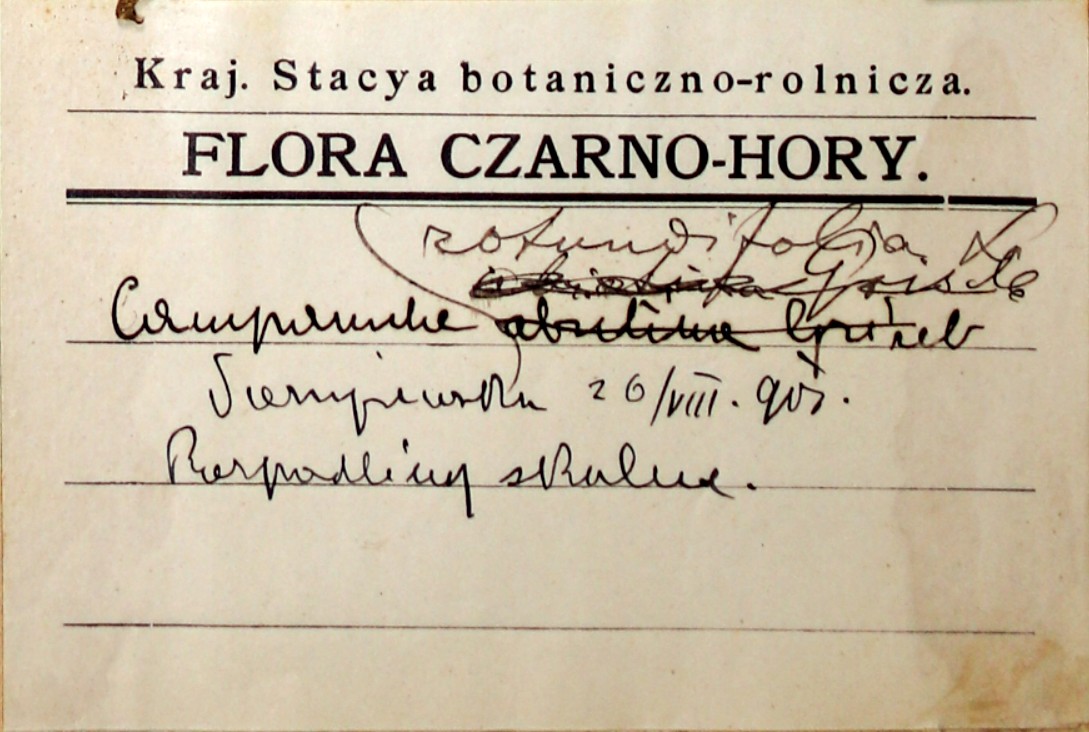 Kraj. Stacya botaniczno-rolnicza.
FLORA CZARNO-HORY.
rotundifolia L.
Griseb
Campanula abietina Griseb
26/VIII. 905.
Rozpadliny skalne.